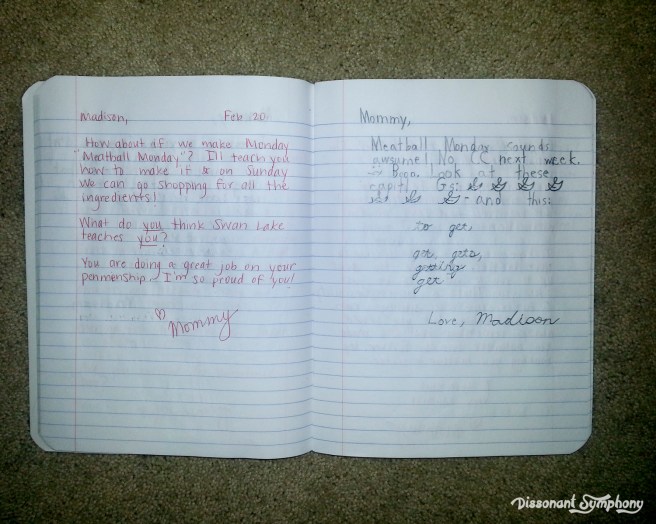 Madison,
Feb 20
How about if we make Monday
"Meatball Monday"? I'll teach you
how to make it & on Sunday
we can go shopping for all the
ingredients!
What do you think Swan Lake
teaches you?
You are doing a great job on your
penmenship. I'm so proud of you!
♡
Mommy
Mommy,
Meatball Monday sounds
awsume! No CC next week.
Look at these
Gs: G G G G
G G G - and this:
to get,
get, gets,
getting
get
Love, Madison
Dissonant Symphony